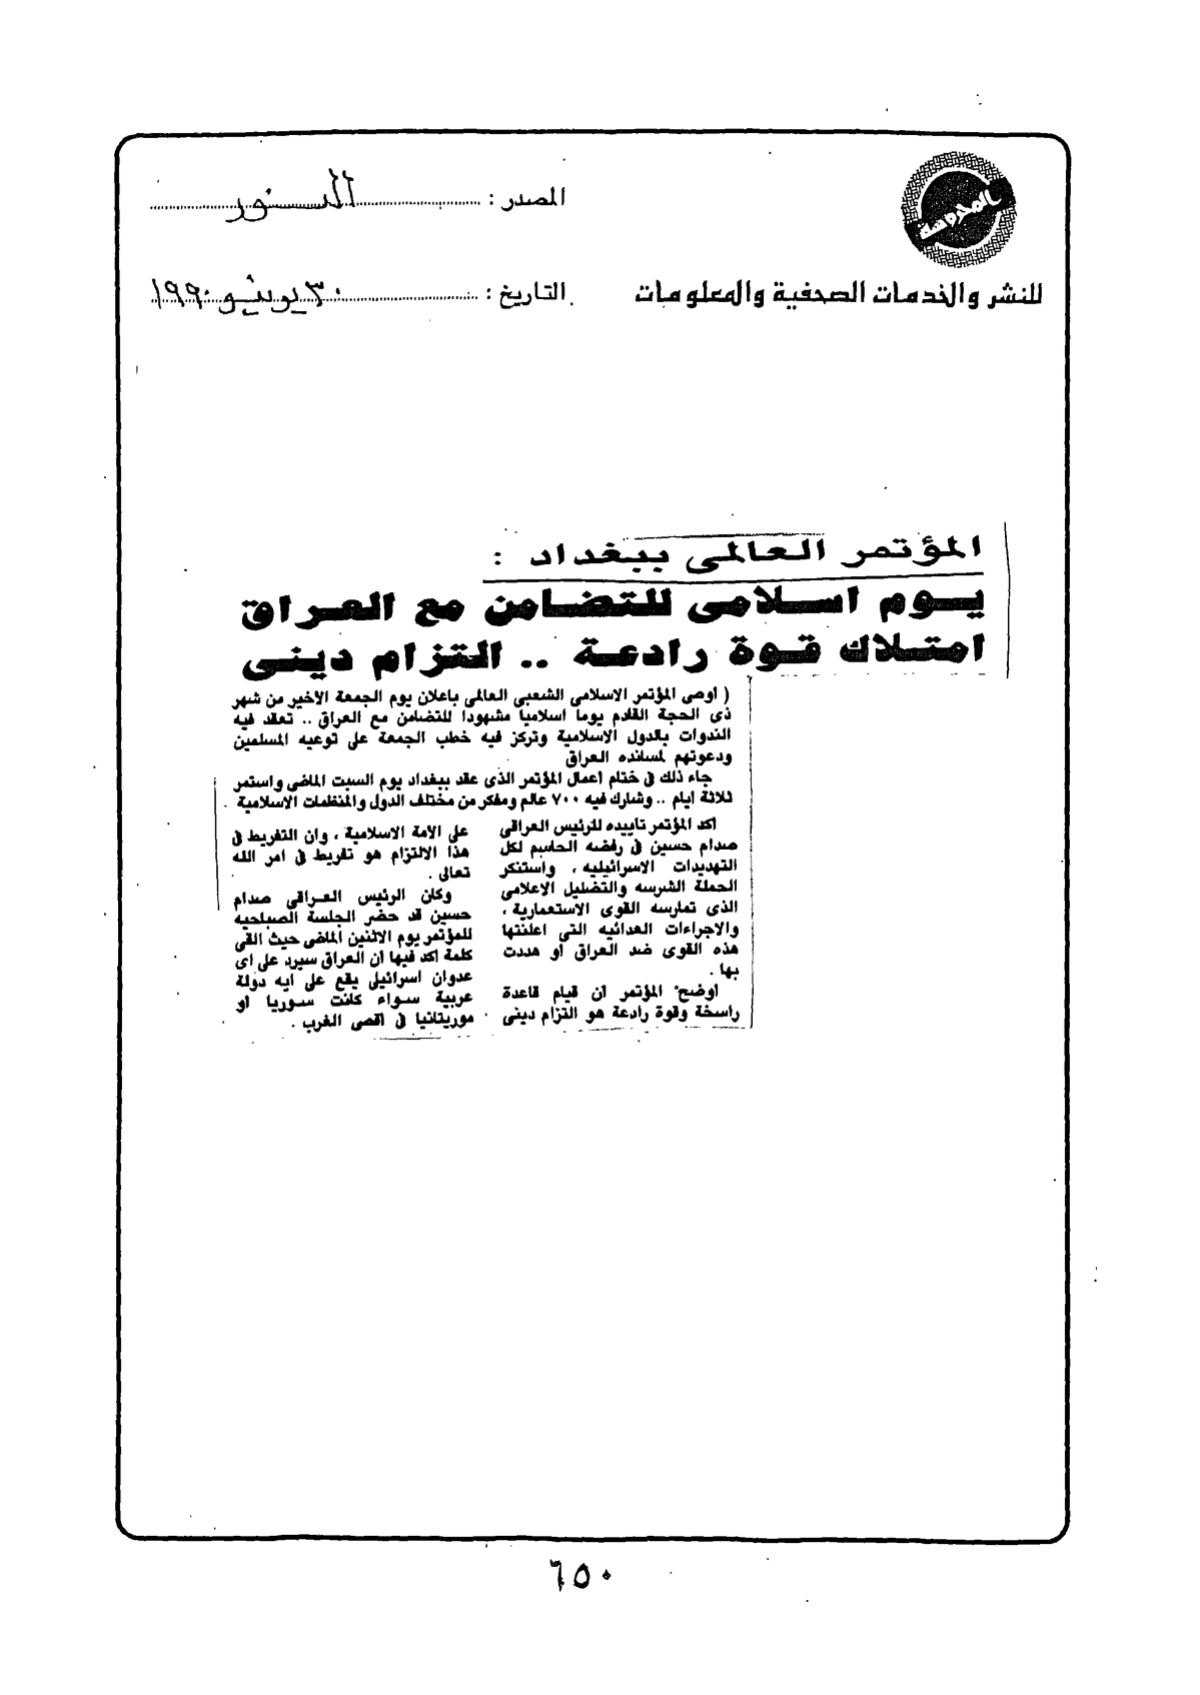 المحروسة
للنشر والخدمات الصحفية والمعلومات
المصدر : النور
التاريخ : ٣٠ يونيو ١٩٩٠
المؤتمر العالمى ببغداد :
يوم اسلامى للتضامن مع العراق
امتلاك قوة رادعة .. التزام دينى
( اوصى المؤتمر الاسلامى الشعبى العالمى باعلان يوم الجمعة الاخير من شهر
ذى الحجة القادم يوما اسلاميا مشهودا للتضامن مع العراق .. تعقد فيه
الندوات بالدول الاسلامية وتركز فيه خطب الجمعة على توعيه المسلمين
ودعوتهم لمسانده العراق
جاء ذلك فى ختام اعمال المؤتمر الذى عقد ببغداد يوم السبت الماضى واستمر
ثلاثة ايام .. وشارك فيه ٧٠٠ عالم ومفكر من مختلف الدول والمنظمات الاسلامية .
اكد المؤتمر تاييده للرئيس العراقى
صدام حسين فى رفضه الحاسم لكل
التهديدات الاسرائيليه ، واستنكر
الحملة الشرسه والتضليل الاعلامى
الذى تمارسه القوى الاستعمارية ،
والاجراءات العدائيه التى اعلنتها
هذه القوى ضد العراق او هددت
بها .
اوضح المؤتمر ان قيام قاعدة
راسخة وقوة رادعة هو التزام دينى
على الأمة الاسلامية ، وان التفريط فى
هذا الالتزام هو تفريط فى امر الله
تعالى .
وكان الرئيس العراقى صدام
حسين قد حضر الجلسة الصباحيه
للمؤتمر يوم الاثنين الماضى حيث القى
كلمة اكد فيها ان العراق سيرد على اى
عدوان اسرائيلى يقع على ايه دولة
عربية سواء كانت سوريا او
موريتانيا فى اقصى الغرب .
٦٥٠